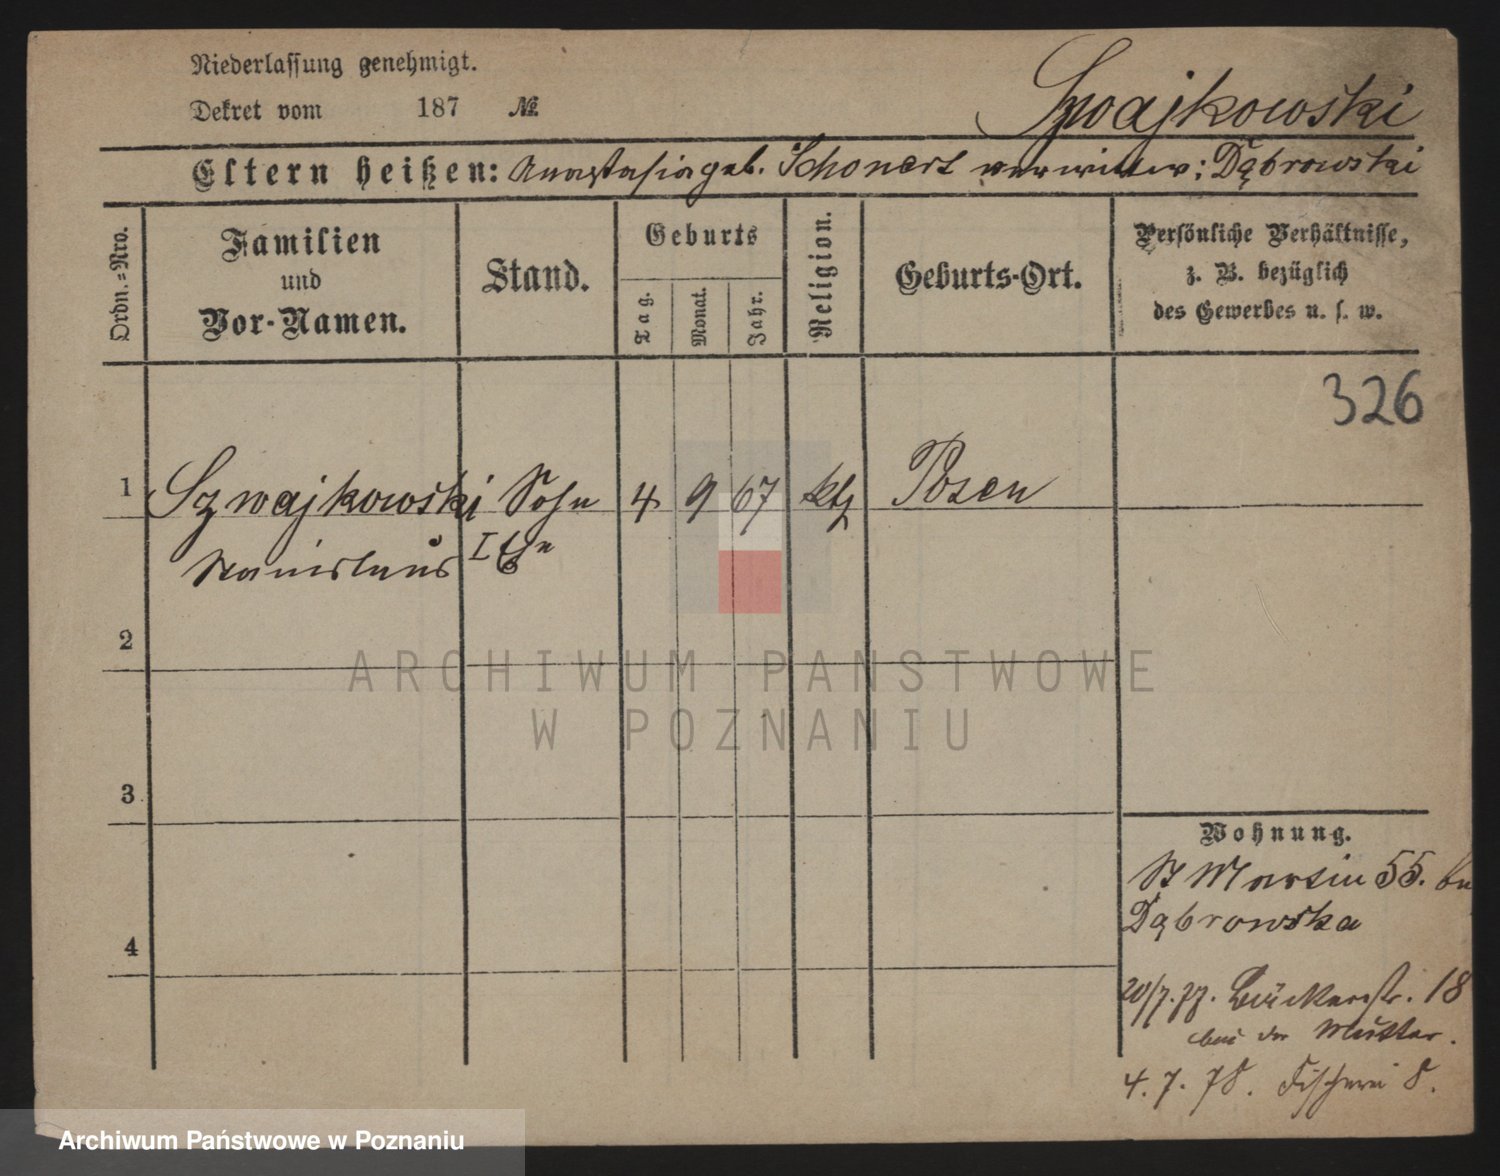 Niederlassung genehmigt.
Dekret vom 187 №
Szwajkowski
Eltern heißen: Anastasia geb. Schonert verwittw: Dąbrowski
Ordn.=Nro.
Familien
und
Vor-Namen.
Stand.
Geburts
Tag.
Monat.
Jahr.
Religion.
Geburts-Ort.
Persönliche Verhältnisse,
z. B. bezüglich
des Gewerbes u. s. w.
326
1 Szwajkowski Sohn 4 9 67 kth Posen
Stanislaus I
2
3
4
Wohnung.
St Martin 55. bei
Dąbrowska
20/7.77. Bäckerstr. 18
bei der Mutter.
4. 7. 78. Fischerei 8.
ARCHIWUM PAŃSTWOWE
W POZNANIU
Archiwum Państwowe w Poznaniu